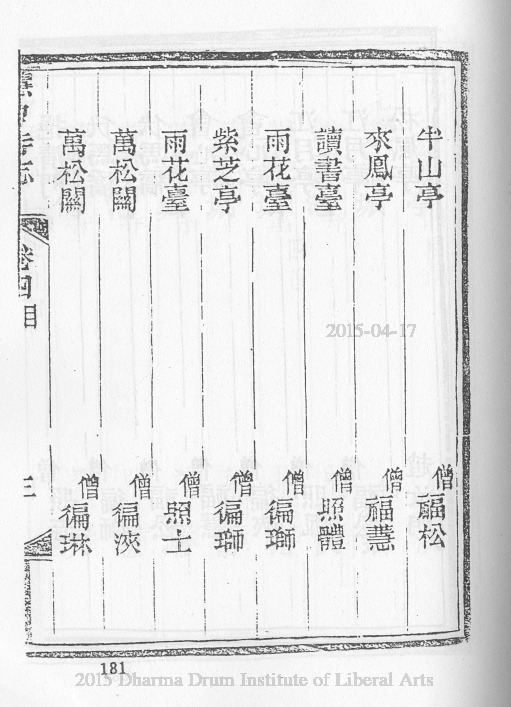 半山亭 僧福松
來鳳亭 僧福慧
讀書臺 僧照體
雨花臺 僧徧瑡
紫芝亭 僧徧瑡
雨花臺 僧照士
萬松關 僧徧浹
萬松關 僧徧琳
寺志 卷四目 三
2015-04-17
181
2015 Dharma Drum Institute of Liberal Arts